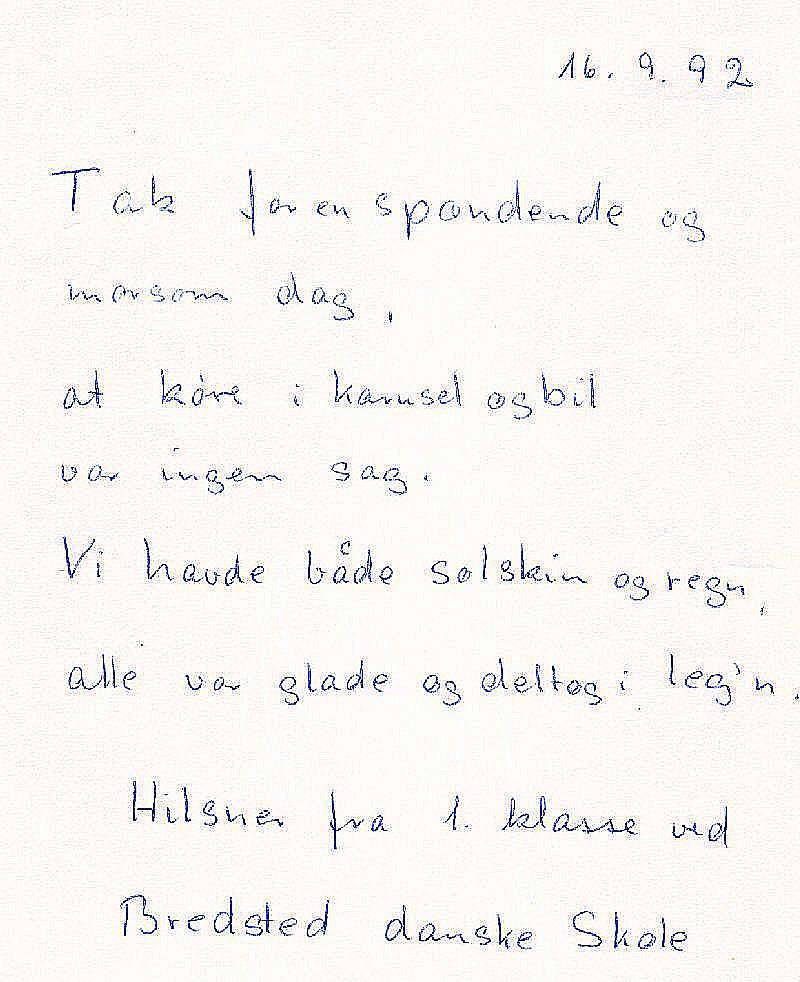 16. 9. 92
Tak for en spændende og
morsom dag,
at køre i karusel og bil
var ingen sag.
Vi havde både solskin og regn,
alle var glade og deltog i leg'n.
Hilsner fra 1. klasse ved
Bredsted danske Skole